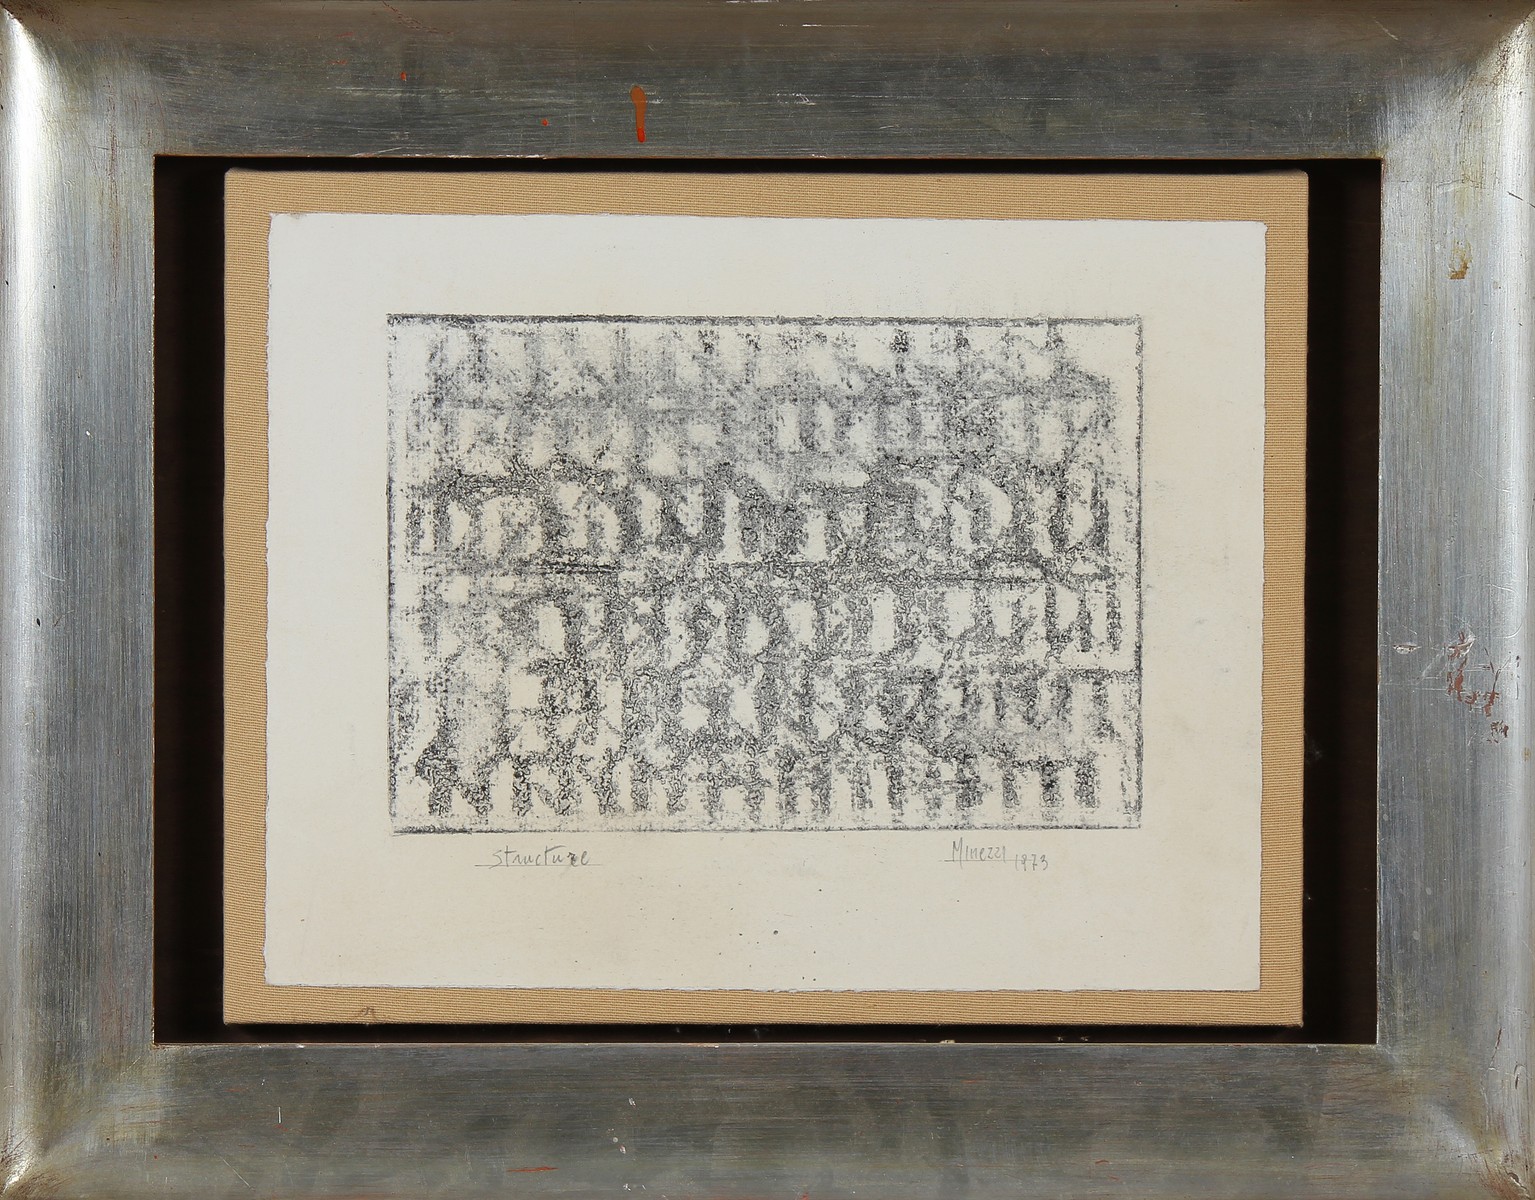 Structure
Minezzi 1973